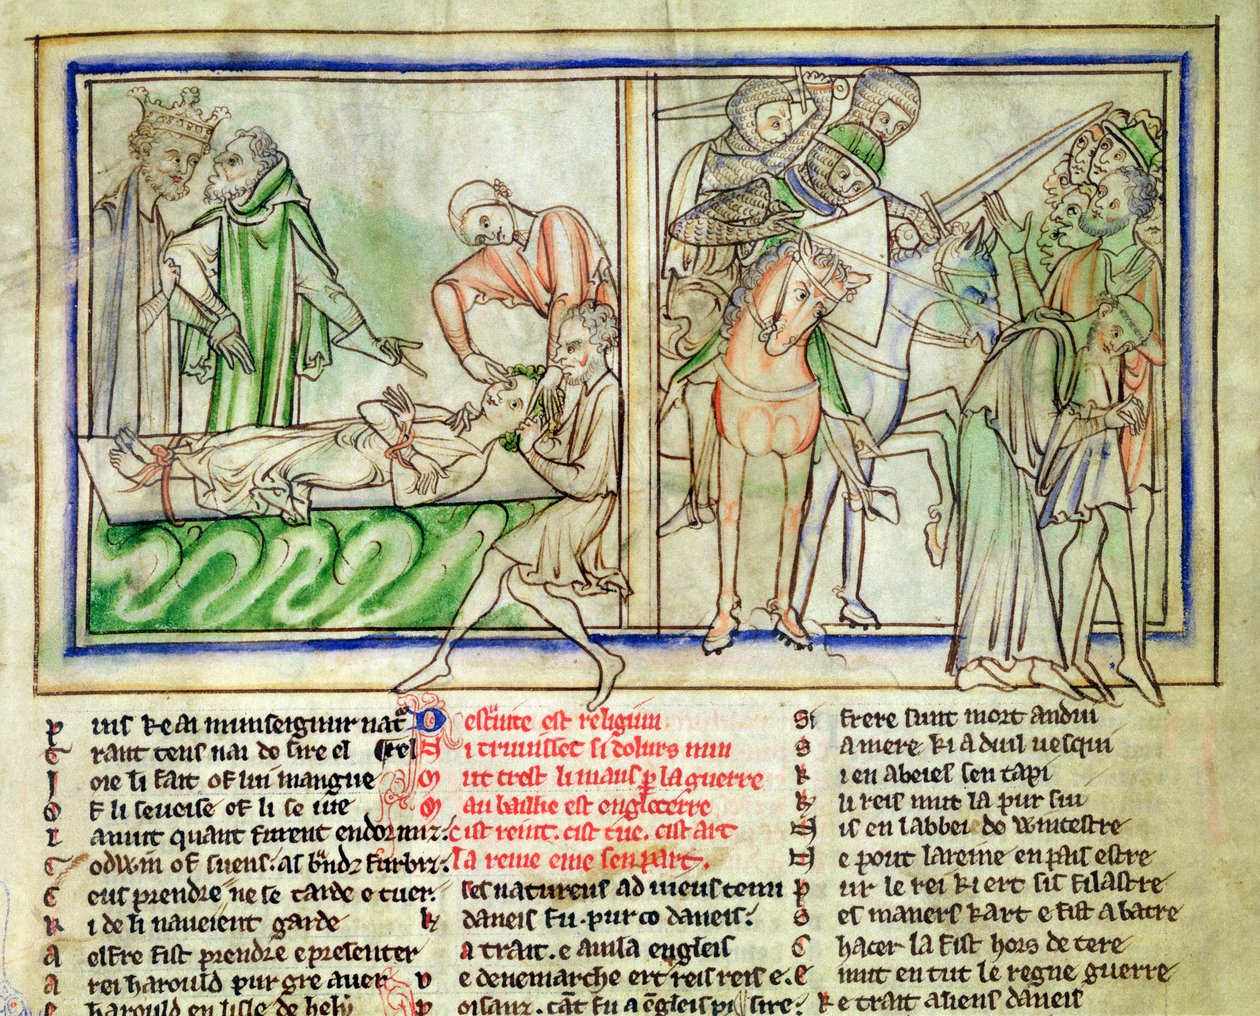 P uis ke ai mun seignur nat
T rant tens nai do sire el
I oie li fait of lui mangue
O f li se
L a nuit quant furent endormiz:
G odwin of suens. as brandz furbiz:
C eus prendre ne se tarde e tuer.
K i de li naveient garde
A elfre fist prendre e presenter
A rei harauld pur gre aver
E harauld en lisle de hely
D estruite est religiun
N i truisset si dolurs nun
M ut crest li maus p la guerre
M au baillie est engleterre
C ist reint. cist tue. cist art
La reine eme sen part.
Les natureus ad meus tenu
K daneis fu. pur co daneis:
A trait. e avila engleis
V e denemarche ert reis
P oisanz. fu a engleis
Si frere sunt mort andui
S a mere ki a duil vesqui
K i en abeies sen tapi
K li reis mut la pur sui
D is en labbei de Wincestre
N e pout la reine en pais estre
P ur le rei ki ert sis filastre
S es maners kart e fist abatre
C hacer la fist hors de tere
E mut en tut le regne guerre
K e trait aliens daneis